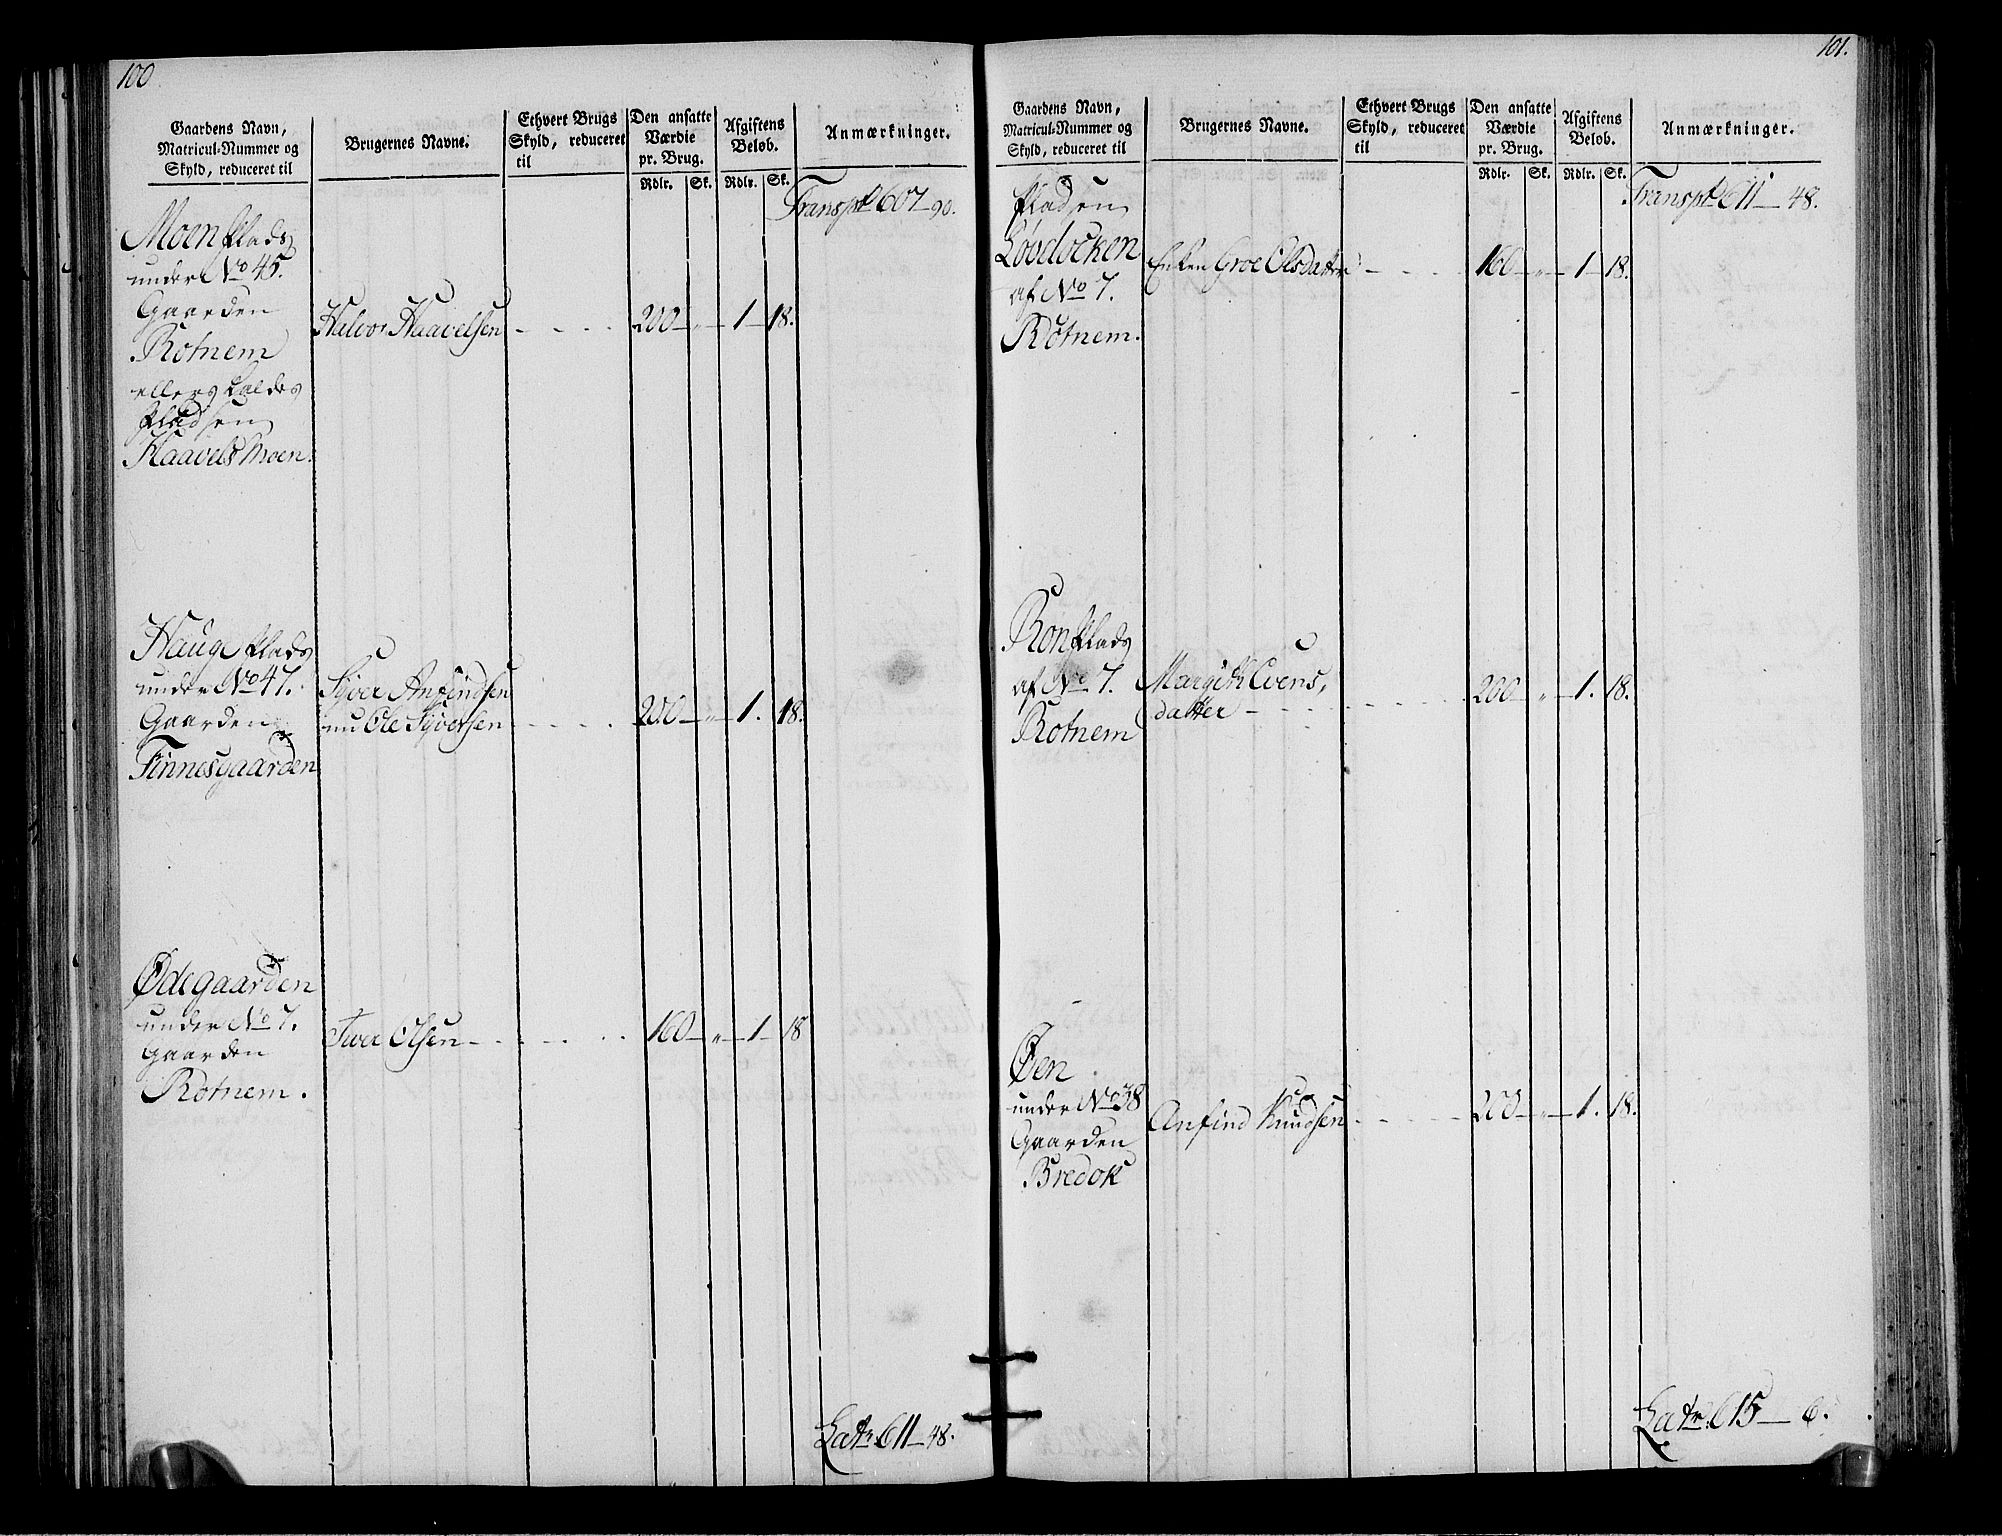 100
Gaardens Navn,
Matricul-Nummer og
Skyld, reduceret til
Brugernes Navne.
Ethvert Brugs
Skyld, reduceret
til
Den ansatte
Værdie
pr. Brug.
Afgiftens
Beløb.
Anmærkninger.
Rdlr. Sk. Rdlr. Sk.
Transpt 607 - 90.
Moen Plads
under No 45.
Gaarden
Rotnem
ellers kaldes
Pladsen
Haavels Moen.
Halvor Haavelsen - - - - 200 - " - 1 - 18.
Hauge Plads
under No 47.
Gaarden
Finnesgaarden
Syver Anfindsen
nu Ole Syversen - - - - 200 - " - 1. 18.
Ødegaarden
under No 7.
Gaarden
Rotnem.
Iver Olsen - - - - - 160 - " - 1 - 18
Latr. 611 - 48.
101.
Gaardens Navn,
Matricul-Nummer og
Skyld, reduceret til
Brugernes Navne.
Ethvert Brugs
Skyld, reduceret
til
Den ansatte
Værdie
pr. Brug.
Afgiftens
Beløb.
Anmærkninger.
Rdlr. Sk. Rdlr. Sk.
Transpt 611 - 48.
Pladsen
Løvdocken
af No 7.
Rotnem.
Enken Groe Olsdatter - - - 160 - " - 1 - 18.
Ron Plads
af No 7.
Rotnem
Margith Evens,
datter - - - - - 200 - " - 1. 18.
Øen
under No 38
Gaarden
Bredok
Anfind Knudsen - - - - 200 - " - 1. 18.
Latr. 615 - 6.